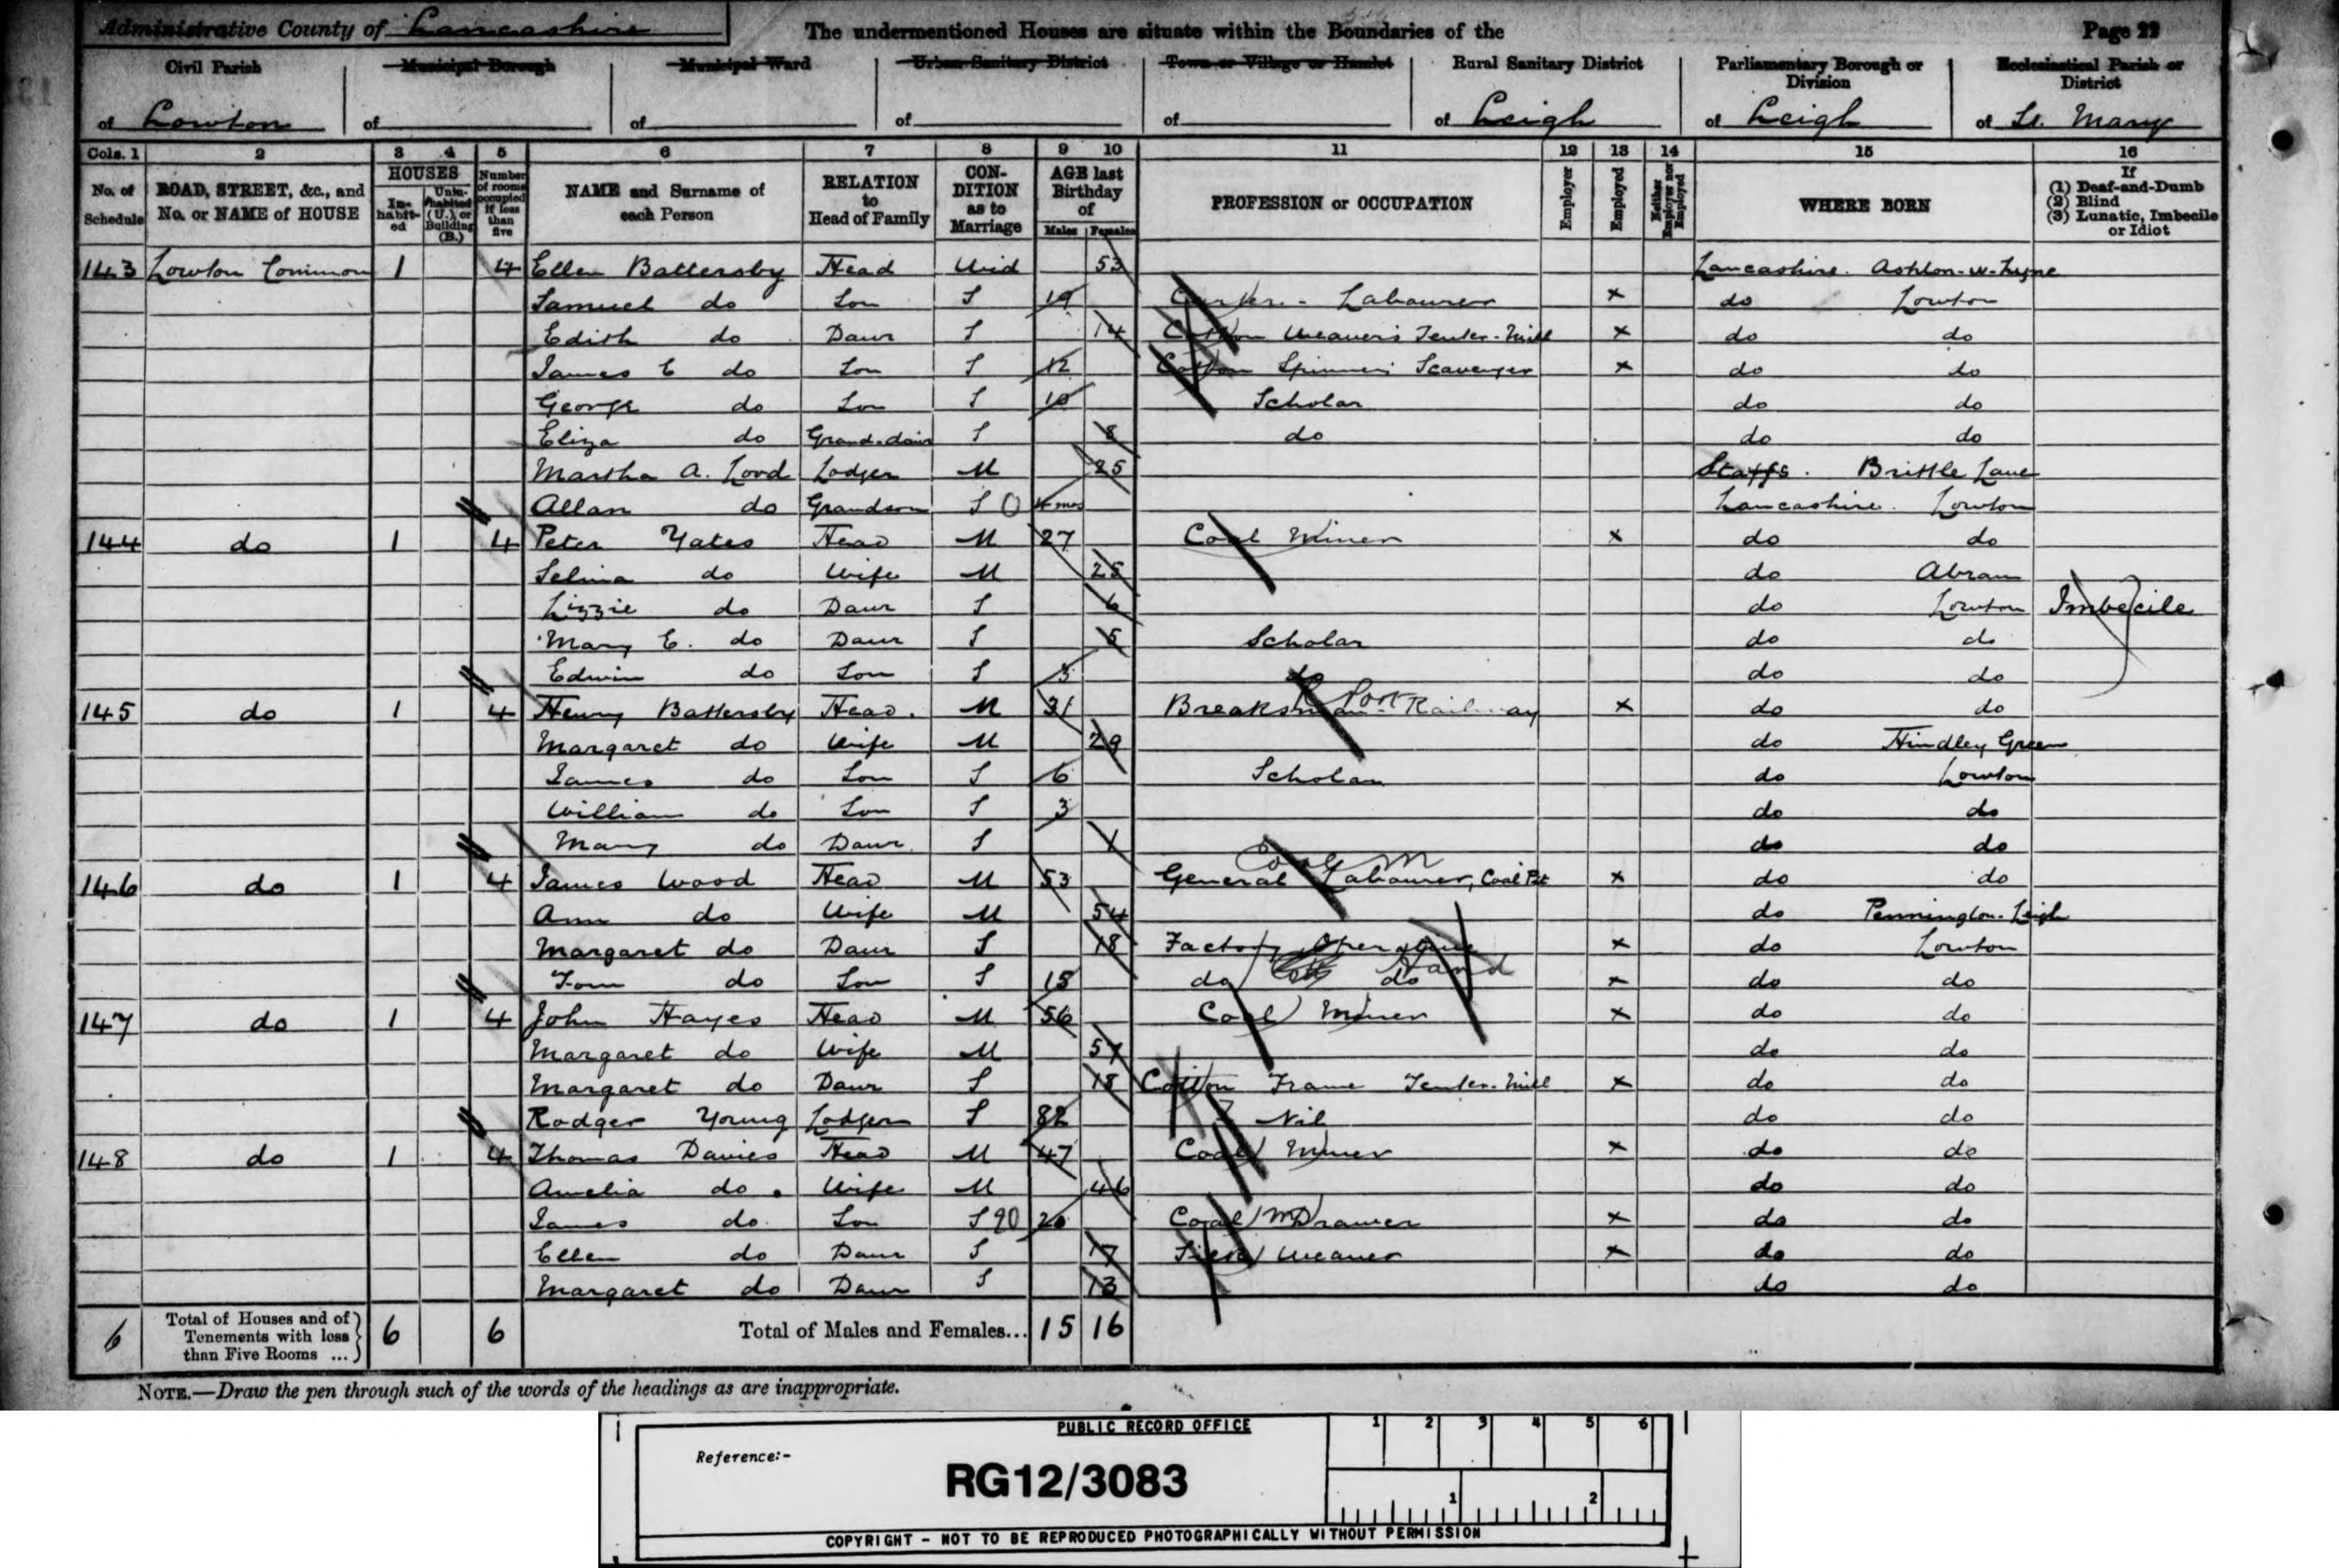 Administrative County of Lancashire The undermentioned Houses are situate within the Boundaries of the Page 22
Civil Parish Municipal Borough Municipal Ward Urban Sanitary District Town or Village or Hamlet Rural Sanitary District Parliamentary Borough or Division Ecclesiastical Parish or District
of Lowton of of of of of Leigh of Leigh of St. Mary
Cols. 1 2 3 4 5 6 7 8 9 10 11 12 13 14 15 16
No. of Schedule ROAD, STREET, &c., and No. or NAME of HOUSE HOUSES In-habit-ed Unin-habited (U.) or Building (B.) Number of rooms occupied if less than five NAME and Surname of each Person RELATION to Head of Family CON-DITION as to Marriage AGE last Birthday of Males Females PROFESSION or OCCUPATION Employer Employed Neither Employer nor Employed WHERE BORN If (1) Deaf-and-Dumb (2) Blind (3) Lunatic, Imbecile or Idiot
143 Lowton Common 1 4 Ellen Battersby Head Wid 53 Lancashire. Ashton-u-Lyne
Samuel do Son S 19 Labourer x do Lowton
Edith do Daur S 14 Cotton Weaver's Tenter-Mill x do do
James E do Son S 12 Cotton Spinners Scavenger x do do
George do Son S 10 Scholar do do
Eliza do Grand-daur S 8 do do do
Martha A. Lord Lodger M 25 Staffs. Brittle Lane
Allan do Grandson S 0 4 mos Lancashire. Lowton
144 do 1 4 Peter Yates Head M 27 Coal Miner x do do
Selina do Wife M 25 do Abram
Lizzie do Daur S 6 do Lowton Imbecile
Mary E. do Daur S 5 Scholar do do
Edwin do Son S 3 do do do
145 do 1 4 Henry Battersby Head. M 31 Breaksman Railway x do do
Margaret do Wife M 29 do Hindley Green
James do Son S 6 Scholar do Lowton
William do Son S 3 do do
Mary do Daur. S 1 do do
146 do 1 4 James Wood Head M 53 General Labourer, Coal Pit x do do
Ann do Wife M 54 do Pennington-Leigh
Margaret do Daur S 18 Factory Operative x do Lowton
Tom do Son S 15 do do Hand x do do
147 do 1 4 John Hayes Head M 56 Coal Miner x do do
Margaret do Wife M 57 do do
Margaret do Daur S 18 Cotton Frame Tenter-Mill x do do
Rodger Young Lodger S 82 Nil do do
148 do 1 4 Thomas Davies Head M 47 Coal Miner x do do
Amelia do Wife M 46 do do
James do Son S 20 20 Coal M Drawer x do do
Ellen do Daur S 17 Weaver x do do
Margaret do Daur S 13 do do
6 Total of Houses and of Tenements with less than Five Rooms ... 6 6 Total of Males and Females... 15 16
NOTE.—Draw the pen through such of the words of the headings as are inappropriate.
PUBLIC RECORD OFFICE 1 2 3 4 5 6
Reference:-
RG12/3083
1 2
COPYRIGHT - NOT TO BE REPRODUCED PHOTOGRAPHICALLY WITHOUT PERMISSION